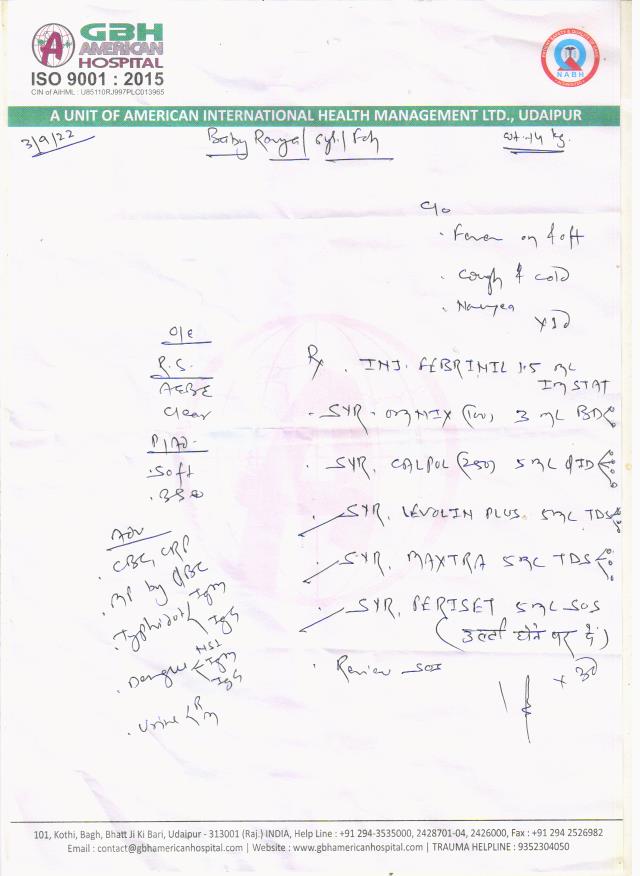 GBH
AMERICAN
HOSPITAL
ISO 9001 : 2015
CIN of AIHML : U85110RJ997PLC013965
NABH
A UNIT OF AMERICAN INTERNATIONAL HEALTH MANAGEMENT LTD., UDAIPUR
3/9/22
Baby / 5yr. / Fch
wt. 14 kg.
C/o
. Fever on & off
. Cough & cold
. Nausea
x 1D
O/E
R.S.
AEBE
Clear
P/Ad.
. Soft
. BS
Rx . INJ. FEBRINIL 1.5 ML
IM STAT
. SYR. (100) 3 ML BD
. SYR. CALPOL (250) 5 ML QID
. SYR. LEVOLIN PLUS 5ML TDS
. SYR. MAXTRA 5ML TDS
. SYR. PERISET 5ML SOS
(उल्टी होने पर दें)
x 3D
. Review SOS
Adv
. CBC, CRP
. MP by QBC
. Typhidot IgM
IgG
. Dengue NS1
IgM
IgG
. Urine R
M
101, Kothi, Bagh, Bhatt Ji Ki Bari, Udaipur - 313001 (Raj.) INDIA, Help Line : +91 294-3535000, 2428701-04, 2426000, Fax : +91 294 2526982
Email : contact@gbhamericanhospital.com | Website : www.gbhamericanhospital.com | TRAUMA HELPLINE : 9352304050